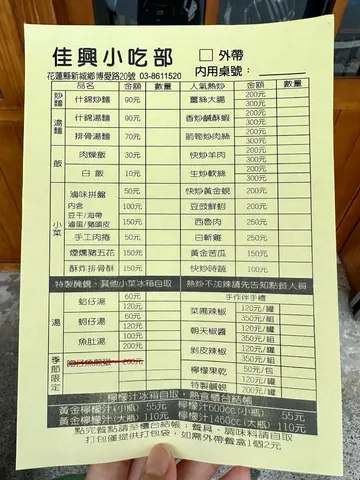 佳興小吃部
□ 外帶
花蓮縣新城鄉博愛路20號 03-8611520
內用桌號：
品名 金額 數量 人氣熱炒 金額 數量
炒麵 什錦炒麵 90元
薑絲大腸 200元 300元
香炒鹹酥蝦 200元 300元
湯麵 什錦湯麵 90元
排骨湯麵 70元
箭筍炒肉絲 200元 300元
飯 肉燥飯 30元
快炒羊肉 200元 300元
白飯 10元
生炒軟絲 200元 300元
小菜
滷味拼盤 50元
內含 100元
豆干/海帶
滷蛋/豬頭皮 150元
手工肉捲 50元
煙燻豬五花 150元
酥炸排骨酥 150元
快炒黃金蜆 200元
豆豉鮮蚵 200元
西魯肉 250元
白斬雞 250元
黃金苦瓜 150元
快炒時蔬 100元
特製醃蜆，其他小菜冰箱自取
熱炒不加辣請先告知點餐人員
湯
蛤仔湯 60元 120元
蚵仔湯 60元 120元
魚肚湯 120元 200元
手作伴手禮
菜圃辣椒 120元/罐 350元/組
朝天椒醬 120元/罐 350元/組
剝皮辣椒 120元/罐 350元/組
檸檬果乾 50元/包
特製鹹蜆 200元/罐
季節限定
200元
檸檬汁冰箱自取，熱食櫃台結帳
黃金檸檬汁(小瓶) 55元 檸檬汁600cc(小瓶) 55元
黃金檸檬汁(大瓶) 110元 檸檬汁1460cc(大瓶) 110元
點完餐點請至櫃台結帳；餐具、調味料請自取
打包僅提供打包袋，如需外帶餐盒1個2元